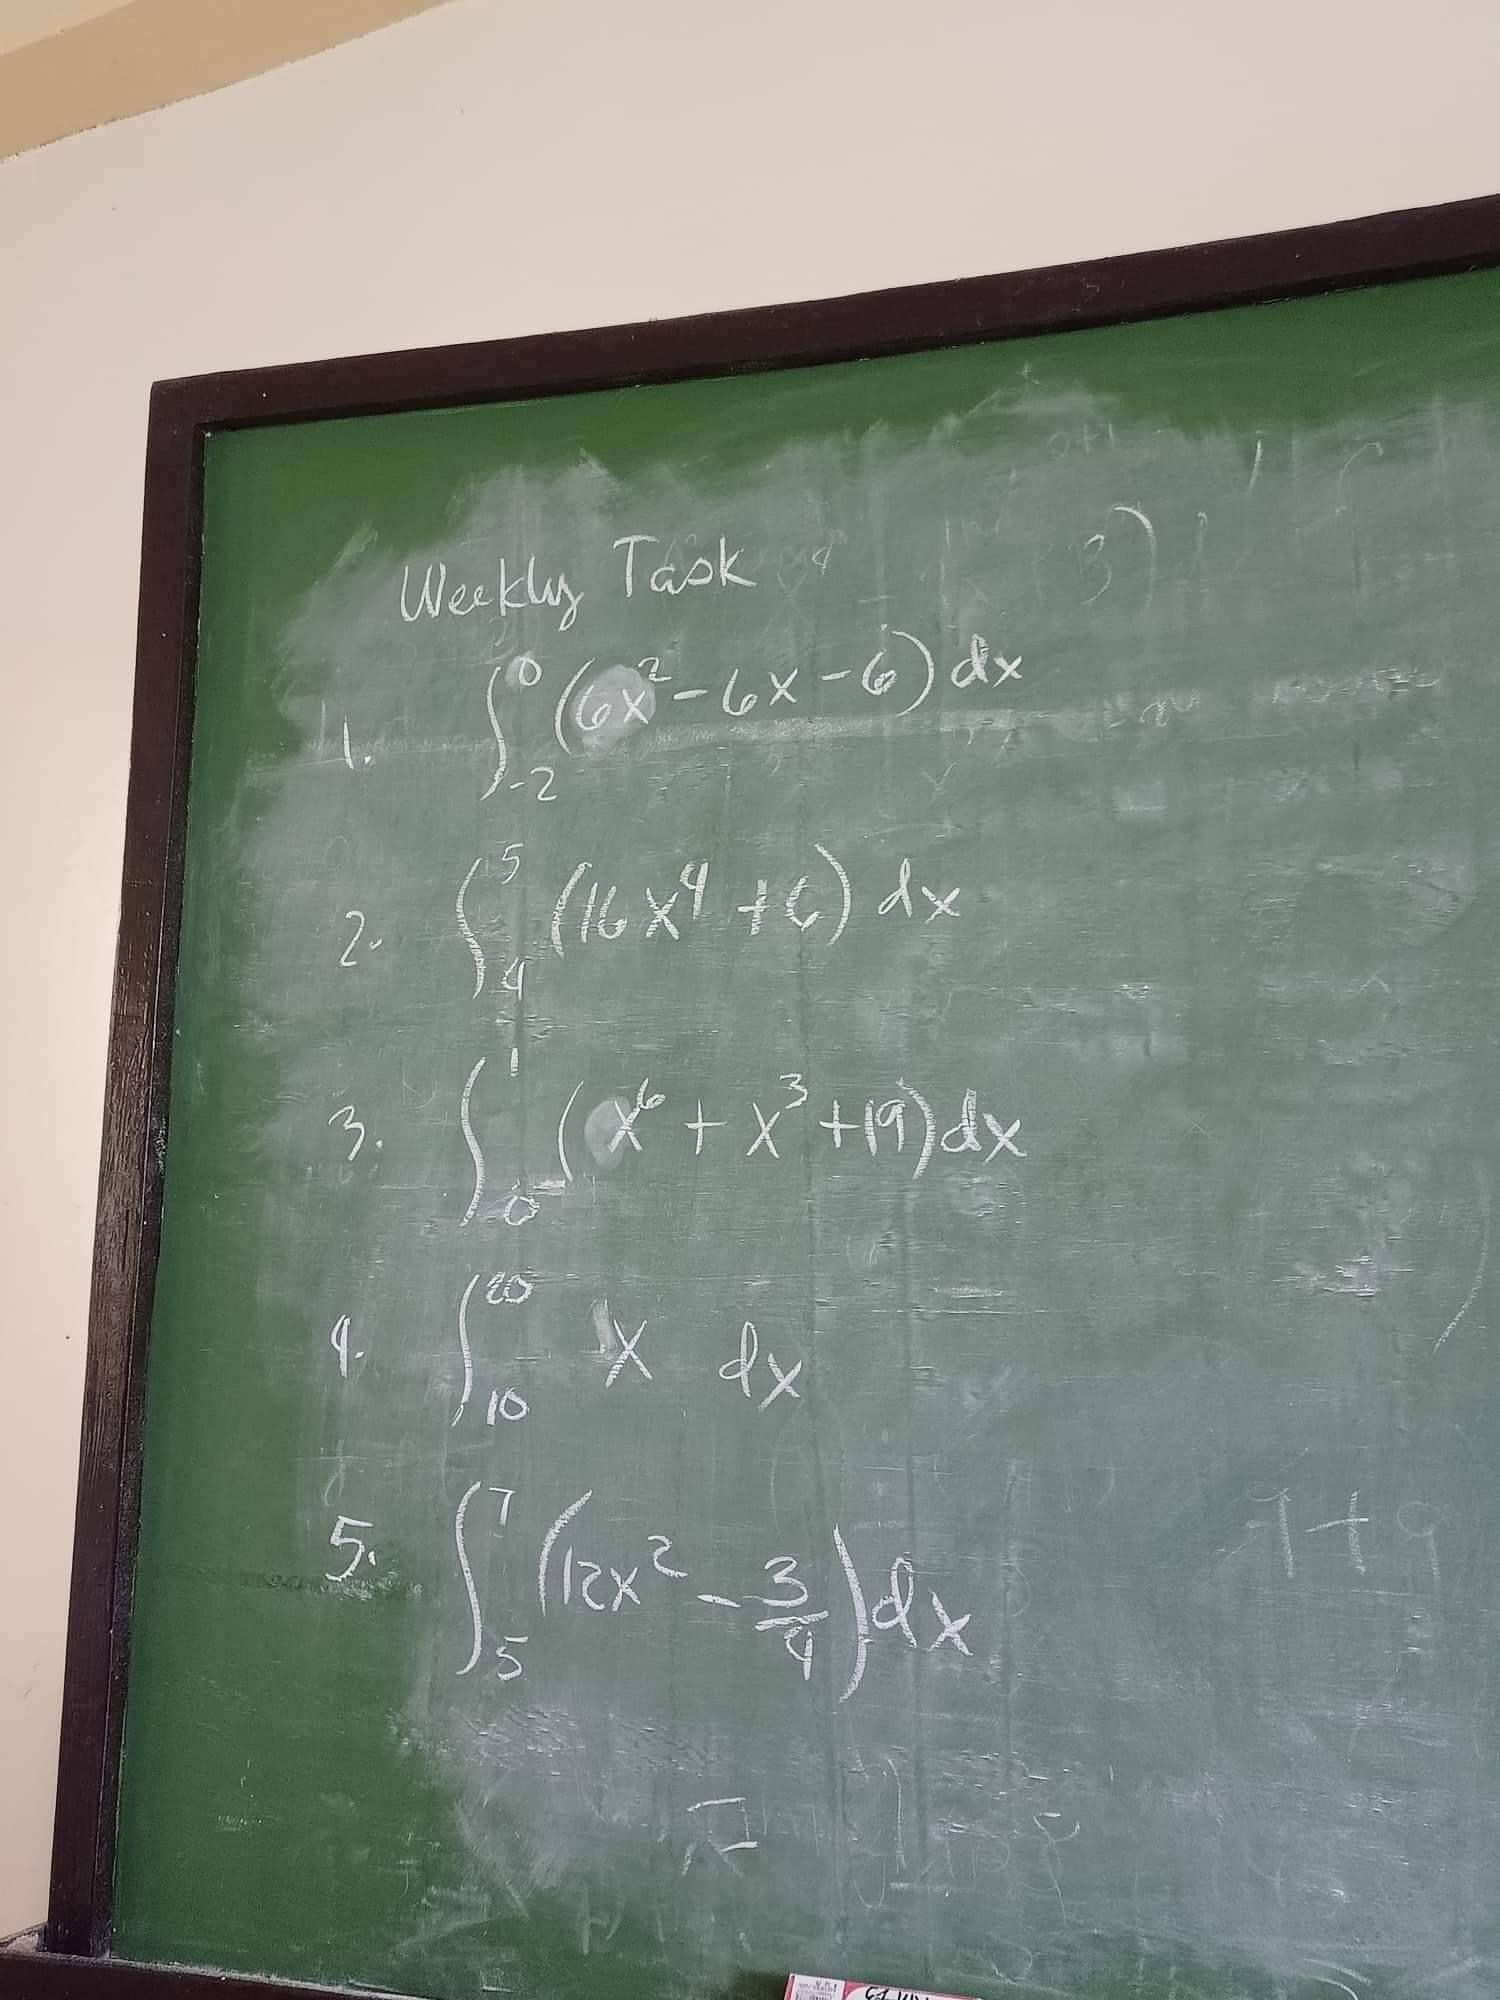 Weekly Task
1. ∫₋₂⁰ (6x² - 6x - 6) dx
2. ∫₄⁵ (16x⁴ + 6) dx
3. ∫₀¹ (x⁶ + x³ + 19) dx
4. ∫₁₀²⁰ x dx
5. ∫₅⁷ (12x² - 3/4) dx